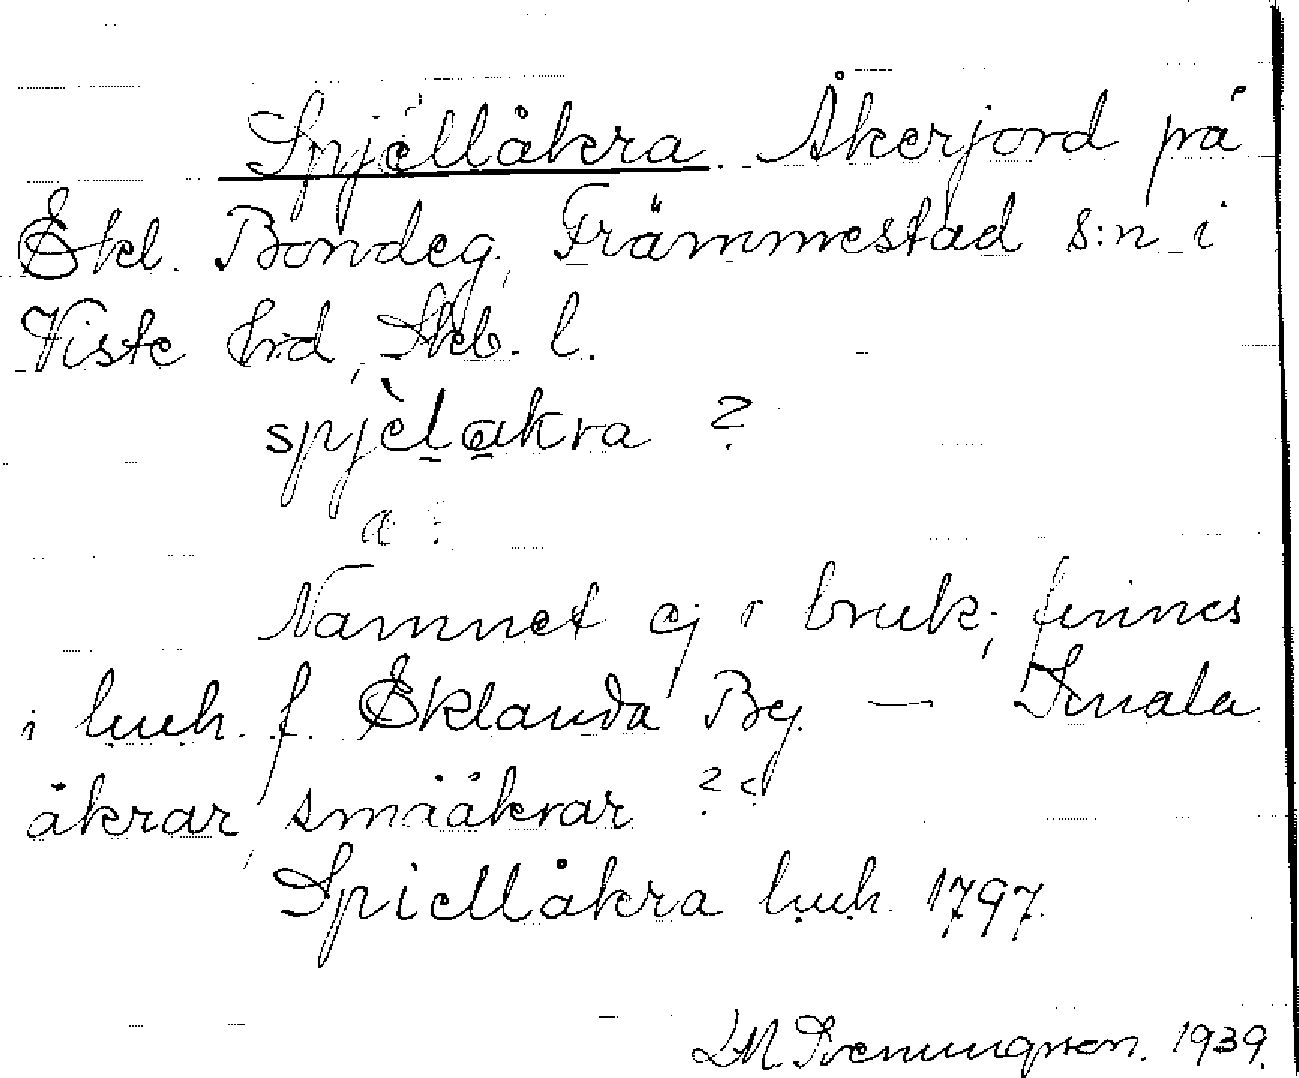 Spjéllåkra. Åkerjord på
Ekl. Bondeg, Främmestad s:n i
Viste hrd, Skb. l.
spjèlakra ?
a :
Namnet ej i bruk; finnes
i luuh. f. Eklanda By. — Smala
åkrar, smååkrar ??
Spiellåkra luuh. 1797.
LM Svenungsson. 1939.